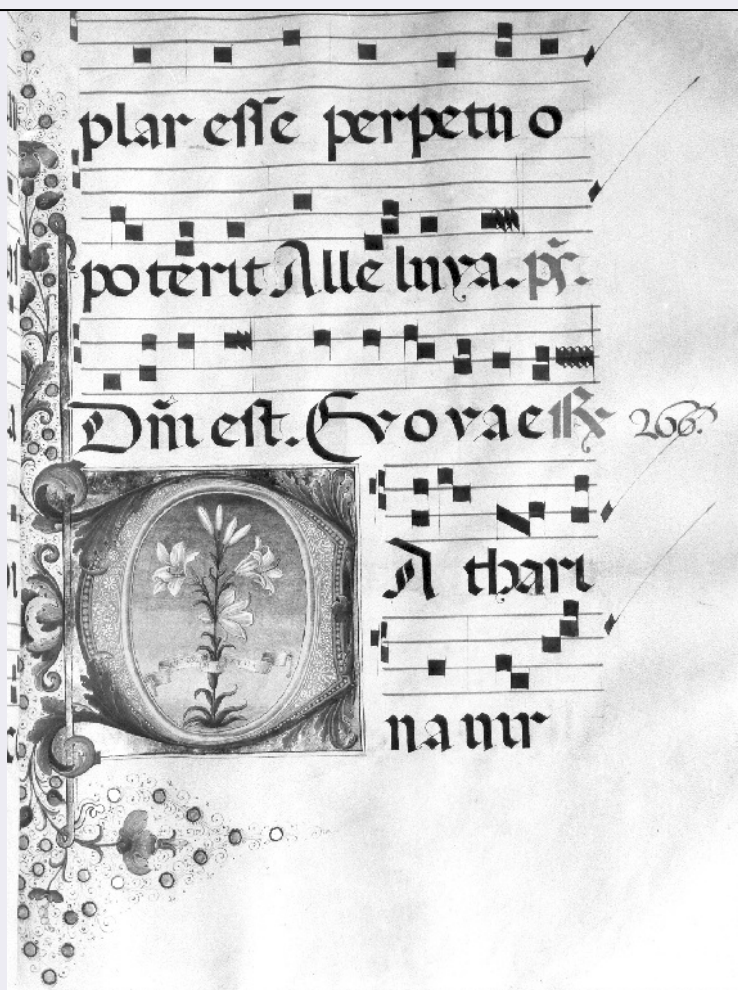 plar esse perpetu o
po terit Alle luya. ps.
Dñi est. Evovae R 266.
C A thari
na uir